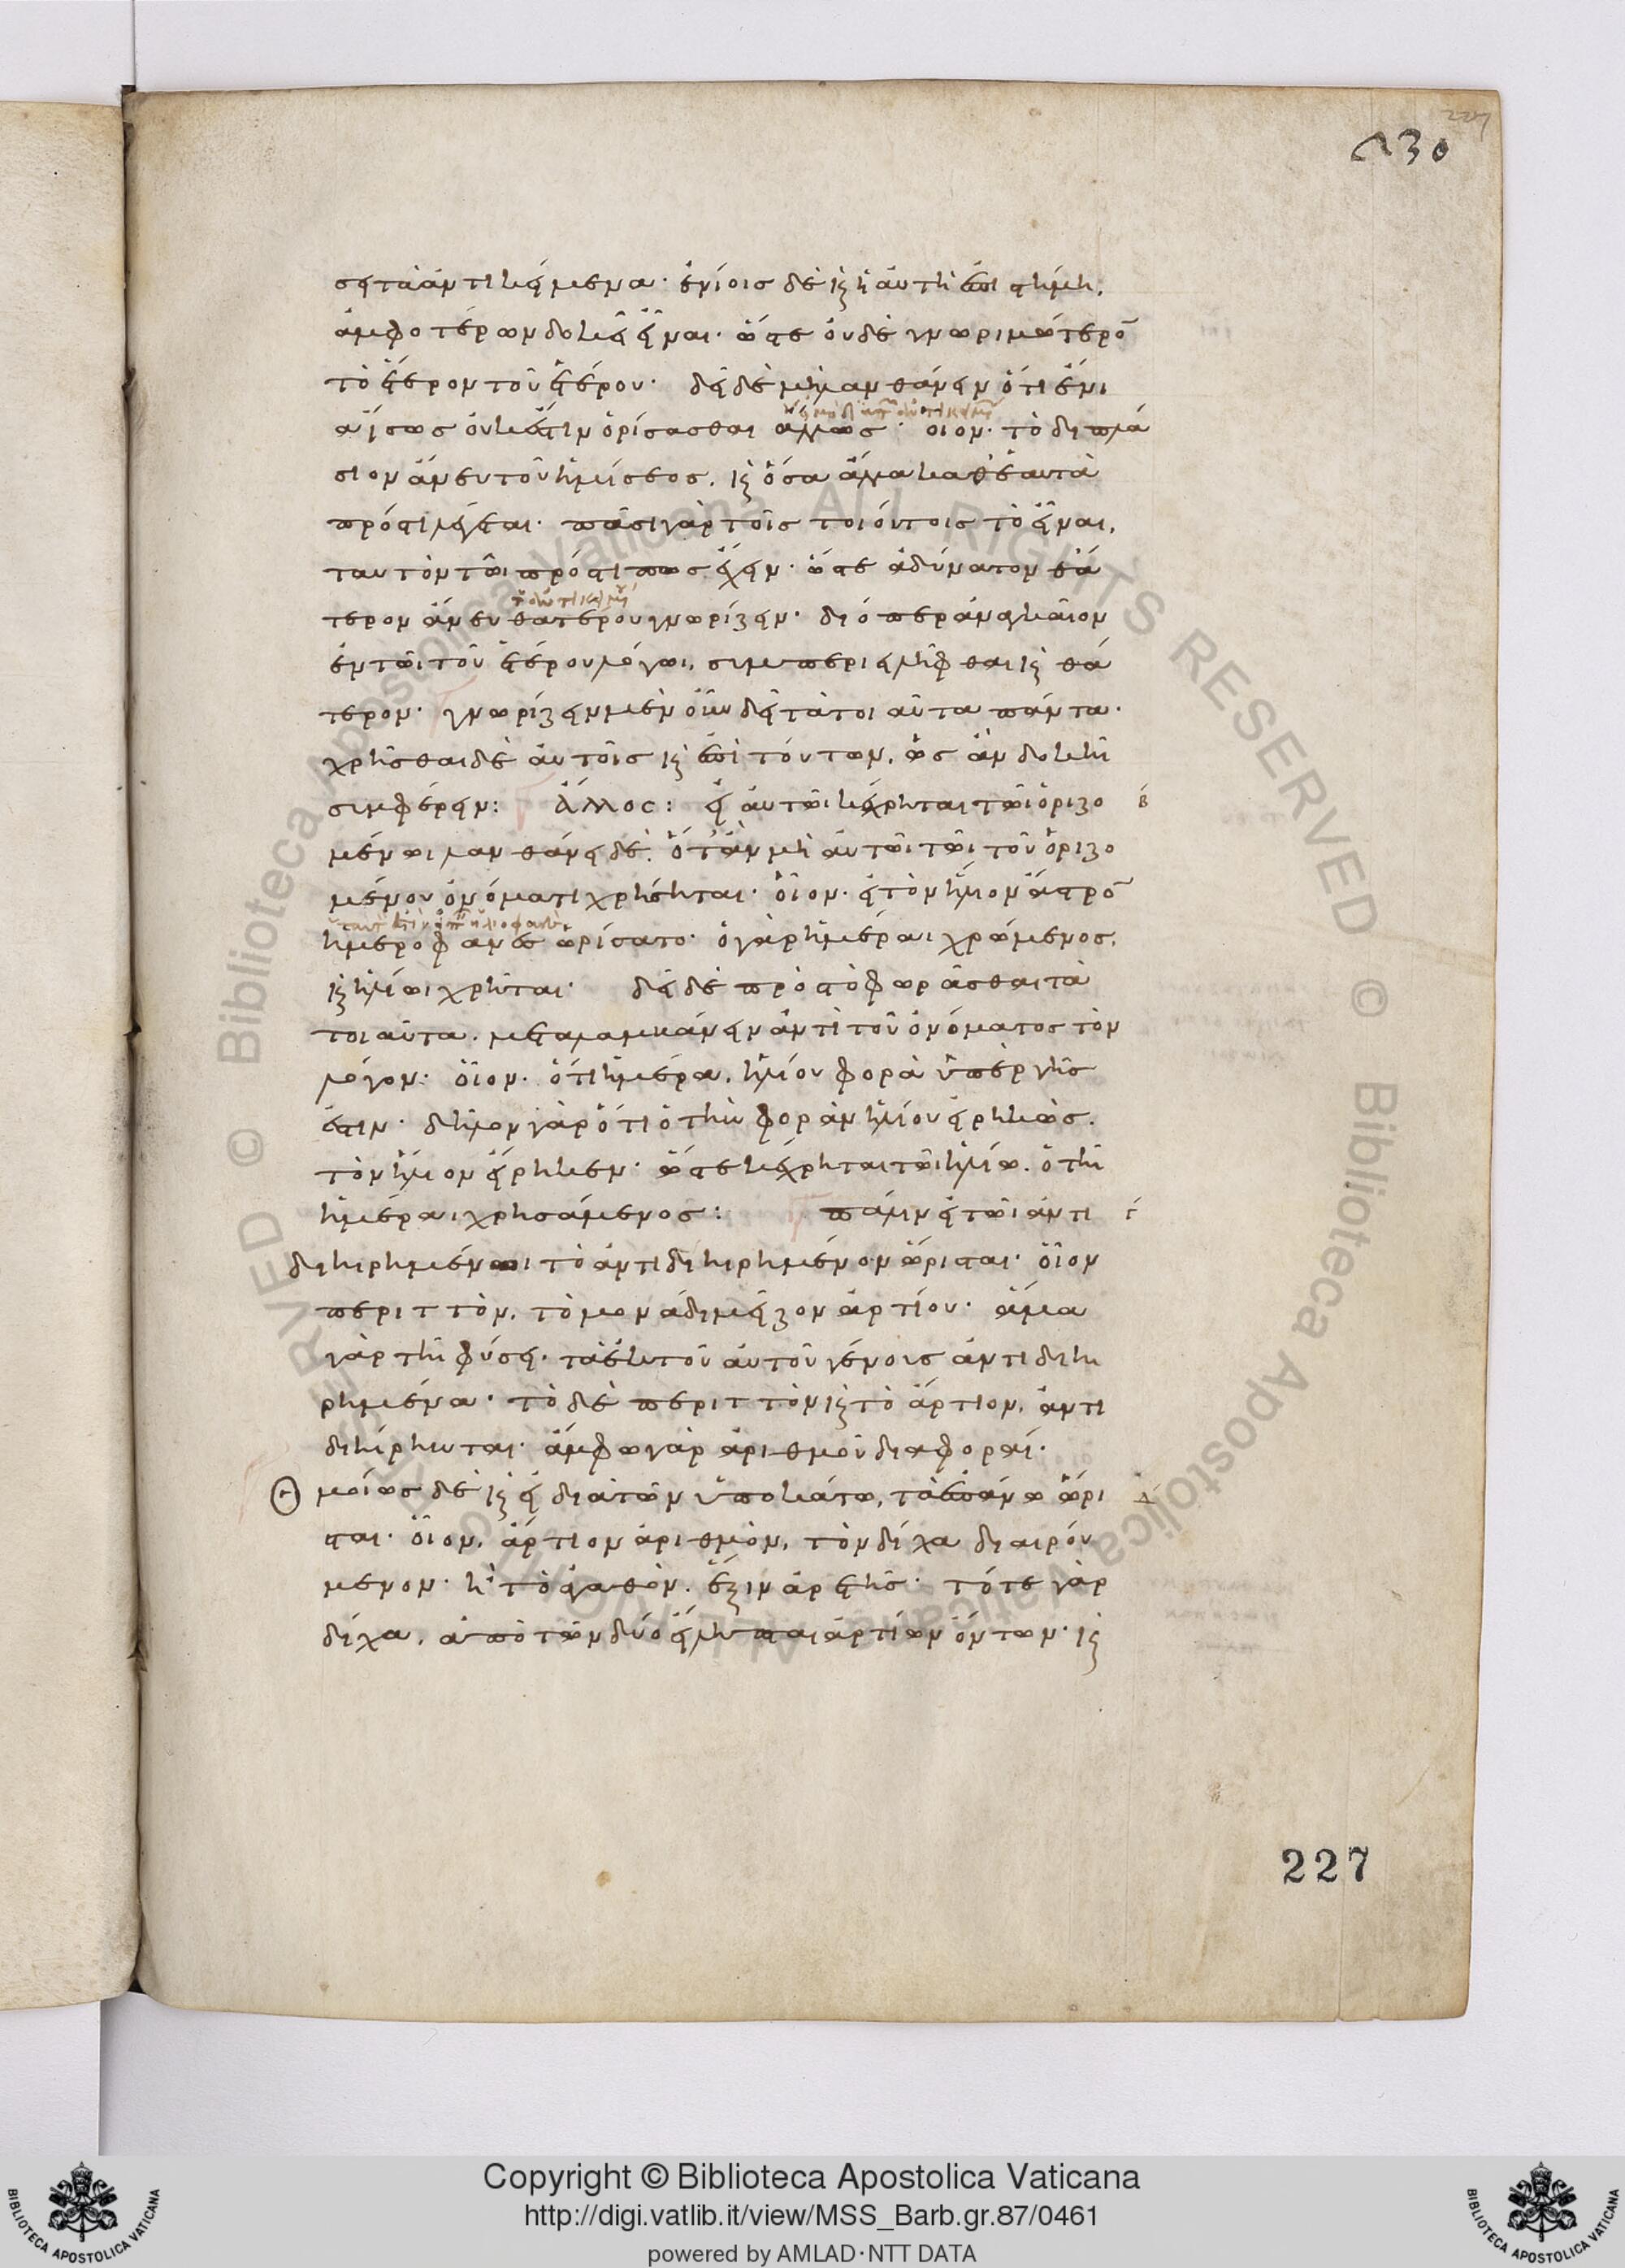 230
227
σει τὰ ἀντικείμενα· ἐνίοις δὲ καὶ ἡ αὐτὴ ἐπιστήμη,
ἀμφοτέρων δοκεῖ εἶναι· ὥστε οὐδὲ γνωριμώτερον
τὸ ἕτερον τοῦ ἑτέρου· δεῖ δὲ μὴ λανθάνειν ὅτι ἔνι
α ἴσως οὐκ ἔστιν ὁρίσασθαι ἄλλως· οἷον· τὸ διπλά
σιον ἄνευ τοῦ ἡμίσεος, καὶ ὅσα ἄλλα καθ' ἑαυτὰ
πρός τι λέγεται· πᾶσι γὰρ τοῖς τοιούτοις τὸ εἶναι,
ταυτὸν τῶι πρός τι πως ἔχειν· ὥστε ἀδύνατον θά
τερον ἄνευ θατέρου γνωρίζειν· διόπερ ἀναγκαῖον
ἐν τῶι τοῦ ἑτέρου λόγωι, συμπεριειλῆφθαι καὶ θά
τερον· γνωρίζειν μὲν οὖν δεῖ τὰ τοιαῦτα πάντα·
χρῆσθαι δὲ αὐτοῖς καὶ ἐπὶ τούτων, ὡς ἂν δοκῆι
συμφέρειν: Ἄλλος: εἰ αὐτῶι κέχρηται τῶι ὁριζο β
μένωι λανθάνει δέ· ὅτ' ἂν μὴ αὐτῶι τῶι τοῦ ὁριζο
μένου ὀνόματι χρήσηται· οἷον· εἰ τὸν ἥλιον ἄστρον
ἡμεροφανὲς ὡρίσατο· ὁ γὰρ ἡμέραι χρώμενος,
καὶ ἡλίωι χρῆται· δεῖ δὲ πρὸς τὸ φωρᾶσθαι τὰ
τοιαῦτα, μεταλαμβάνειν ἀντὶ τοῦ ὀνόματος τὸν
λόγον· οἷον· ὅτι ἡμέρα, ἡλίου φορὰ ὑπὲρ γῆς
ἐστιν· δῆλον γὰρ ὅτι ὁ τὴν φορὰν ἡλίου εἰρηκὼς,
τὸν ἥλιον εἴρηκεν· ὥστε κέχρηται τῶι ἡλίω, ὁ τῆι
ἡμέραι χρησάμενος: πάλιν εἰ τῶι ἀντι γ
διηιρημένωι τὸ ἀντιδιηιρημένον ὥρισται· οἷον
περιττὸν, τὸ μονάδι μεῖζον ἀρτίου· ἅμα
γὰρ τῆι φύσει· τὰ ἐκ τοῦ αὐτοῦ γένους ἀντιδιηι
ρημένα· τὸ δὲ περιττὸν καὶ τὸ ἄρτιον, ἀντι
διήιρηνται· ἄμφω γὰρ ἀριθμοῦ διαφοραί·
Ὁμοίως δὲ καὶ εἰ διὰ τῶν ὑποκάτω, τὰ ἐπάνω ὥρι δ
σται· οἷον, ἄρτιον ἀριθμὸν, τὸν δίχα διαιρού
μενον· ἢ τὸ ἀγαθὸν, ἕξιν ἀρετῆς· τό τε γὰρ
δίχα, ἀπὸ τῶν δύο εἴληπται ἀρτίων ὄντων· καὶ
Copyright © Biblioteca Apostolica Vaticana
http://digi.vatlib.it/view/MSS_Barb.gr.87/0461
powered by AMLAD·NTT DATA